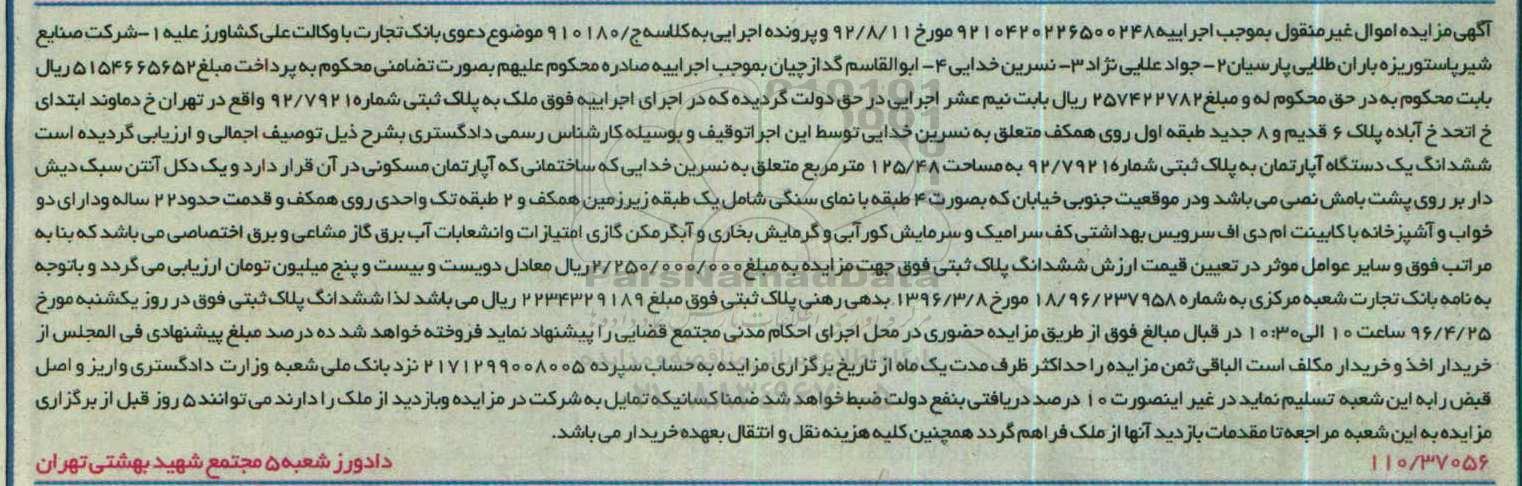 آگهی مزایده اموال غیرمنقول بموجب اجراییه ۹۲۱۰۴۲۰۲۲۶۵۰۰۲۴۸ مورخ ۹۲/۸/۱۱ و پرونده اجرایی به کلاسه ج/۹۱۰۱۸۰ موضوع دعوی بانک تجارت با وکالت علی کشاورز علیه ۱- شرکت صنایع
شیر پاستوریزه باران طلایی پارسیان ۲- جواد علایی نژاد ۳- نسرین خدایی ۴- ابوالقاسم گدازچیان بموجب اجراییه صادره محکوم علیهم بصورت تضامنی محکوم به پرداخت مبلغ ۵۱۵۴۶۶۵۶۵۲ ریال
بابت محکوم به در حق محکوم له و مبلغ ۲۵۷۴۲۲۷۸۲ ریال بابت نیم عشر اجرایی در حق دولت گردیده که در اجرای اجراییه فوق ملک به پلاک ثبتی شماره ۹۲/۷۹۲۱ واقع در تهران خ دماوند ابتدای
خ اتحد خ آباده پلاک ۶ قدیم و ۸ جدید طبقه اول روی همکف متعلق به نسرین خدایی توسط این اجرا توقیف و بوسیله کارشناس رسمی دادگستری بشرح ذیل توصیف اجمالی و ارزیابی گردیده است
ششدانگ یک دستگاه آپارتمان به پلاک ثبتی شماره ۹۲/۷۹۲۱ به مساحت ۱۲۵/۴۸ مترمربع متعلق به نسرین خدایی که ساختمانی که آپارتمان مسکونی در آن قرار دارد و یک دکل آنتن سبک دیش
دار بر روی پشت بامش نصی می باشد ودر موقعیت جنوبی خیابان که بصورت ۴ طبقه با نمای سنگی شامل یک طبقه زیرزمین همکف و ۲ طبقه تک واحدی روی همکف و قدمت حدود ۲۲ ساله ودارای دو
خواب و آشپزخانه با کابینت ام دی اف سرویس بهداشتی کف سرامیک و سرمایش کورآبی و گرمایش بخاری و آبگرمکن گازی امتیازات وانشعابات آب برق گاز مشاعی و برق اختصاصی می باشد که بنا به
مراتب فوق و سایر عوامل موثر در تعیین قیمت ارزش ششدانگ پلاک ثبتی فوق جهت مزایده به مبلغ ۲/۲۵۰/۰۰۰/۰۰۰ ریال معادل دویست و بیست و پنج میلیون تومان ارزیابی می گردد و باتوجه
به نامه بانک تجارت شعبه مرکزی به شماره ۱۸/۹۶/۲۳۷۹۵۸ مورخ ۱۳۹۶/۳/۸ بدهی رهنی پلاک ثبتی فوق مبلغ ۲۲۳۴۳۲۹۱۸۹ ریال می باشد لذا ششدانگ پلاک ثبتی فوق در روز یکشنبه مورخ
۹۶/۴/۲۵ ساعت ۱۰ الی ۱۰:۳۰ در قبال مبالغ فوق از طریق مزایده حضوری در محل اجرای احکام مدنی مجتمع قضایی را پیشنهاد نماید فروخته خواهد شد ده درصد مبلغ پیشنهادی فی المجلس از
خریدار اخذ و خریدار مکلف است الباقی ثمن مزایده را حداکثر ظرف مدت یک ماه از تاریخ برگزاری مزایده به حساب سپرده ۲۱۷۱۲۹۹۰۰۸۰۰۵ نزد بانک ملی شعبه وزارت دادگستری واریز و اصل
قبض را به این شعبه تسلیم نماید در غیر اینصورت ۱۰ درصد دریافتی بنفع دولت ضبط خواهد شد ضمنا کسانیکه تمایل به شرکت در مزایده وبازدید از ملک را دارند می توانند ۵ روز قبل از برگزاری
مزایده به این شعبه مراجعه تا مقدمات بازدید آنها از ملک فراهم گردد همچنین کلیه هزینه نقل و انتقال بعهده خریدار می باشد.
۱۱۰/۳۷۰۵۶
دادورز شعبه ۵ مجتمع شهید بهشتی تهران
ParsNamadData